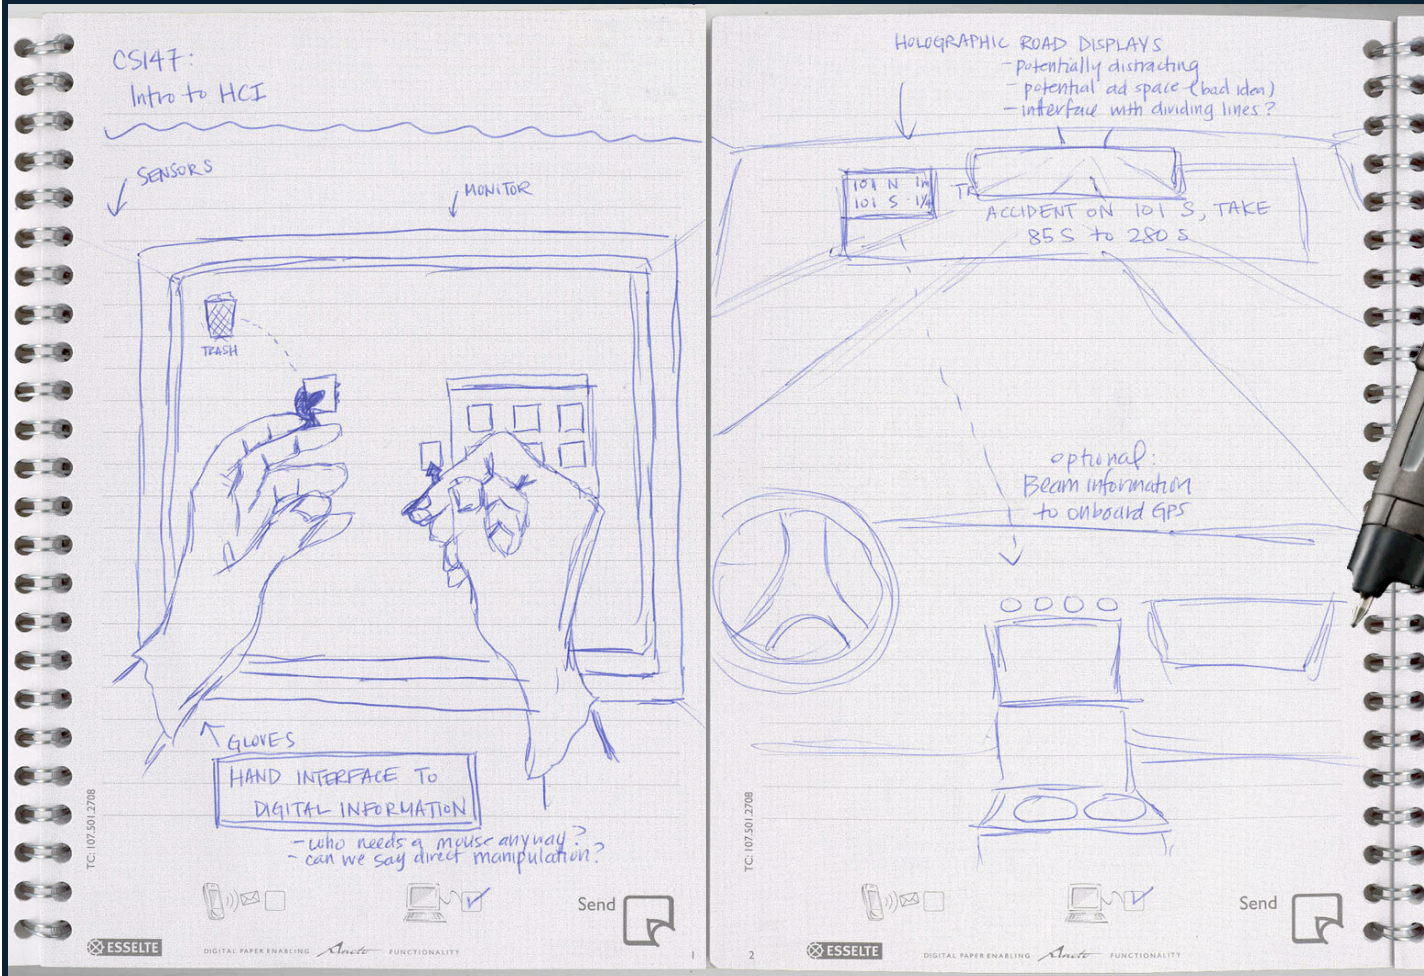 CS147:
Intro to HCI
SENSORS
MONITOR
TRASH
GLOVES
HAND INTERFACE TO
DIGITAL INFORMATION
- who needs a mouse anyway?
- can we say direct manipulation?
TC: 107.501.2708
Send
ESSELTE
DIGITAL PAPER ENABLING Anoto FUNCTIONALITY
1
HOLOGRAPHIC ROAD DISPLAYS
- potentially distracting
- potential ad space (bad idea)
- interface with dividing lines?
101 N 1m
101 S 1¼
TR
ACCIDENT ON 101 S, TAKE
85 S to 280 S
optional:
Beam information
to onboard GPS
TC: 107.501.2708
Send
2
ESSELTE
DIGITAL PAPER ENABLING Anoto FUNCTIONALITY